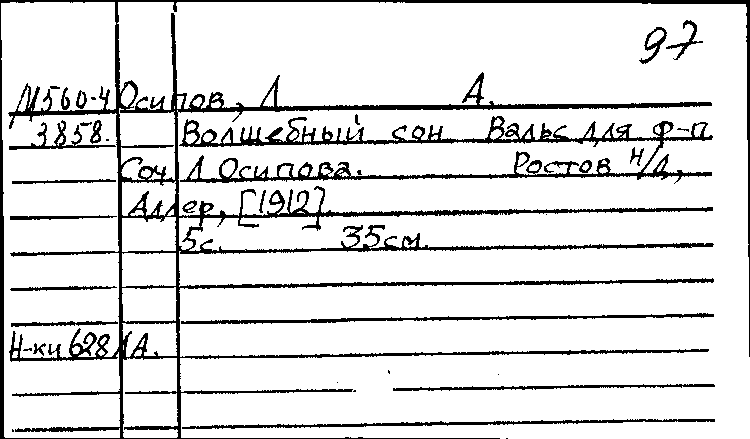 97
М560-4 Осипов, Л А.
3858. Волшебный сон Вальс для ф-п
Соч. Л Осипова. Ростов н/Д,
Адлер, [1912].
5с. 35см.
Н-ки 628 ЛА.